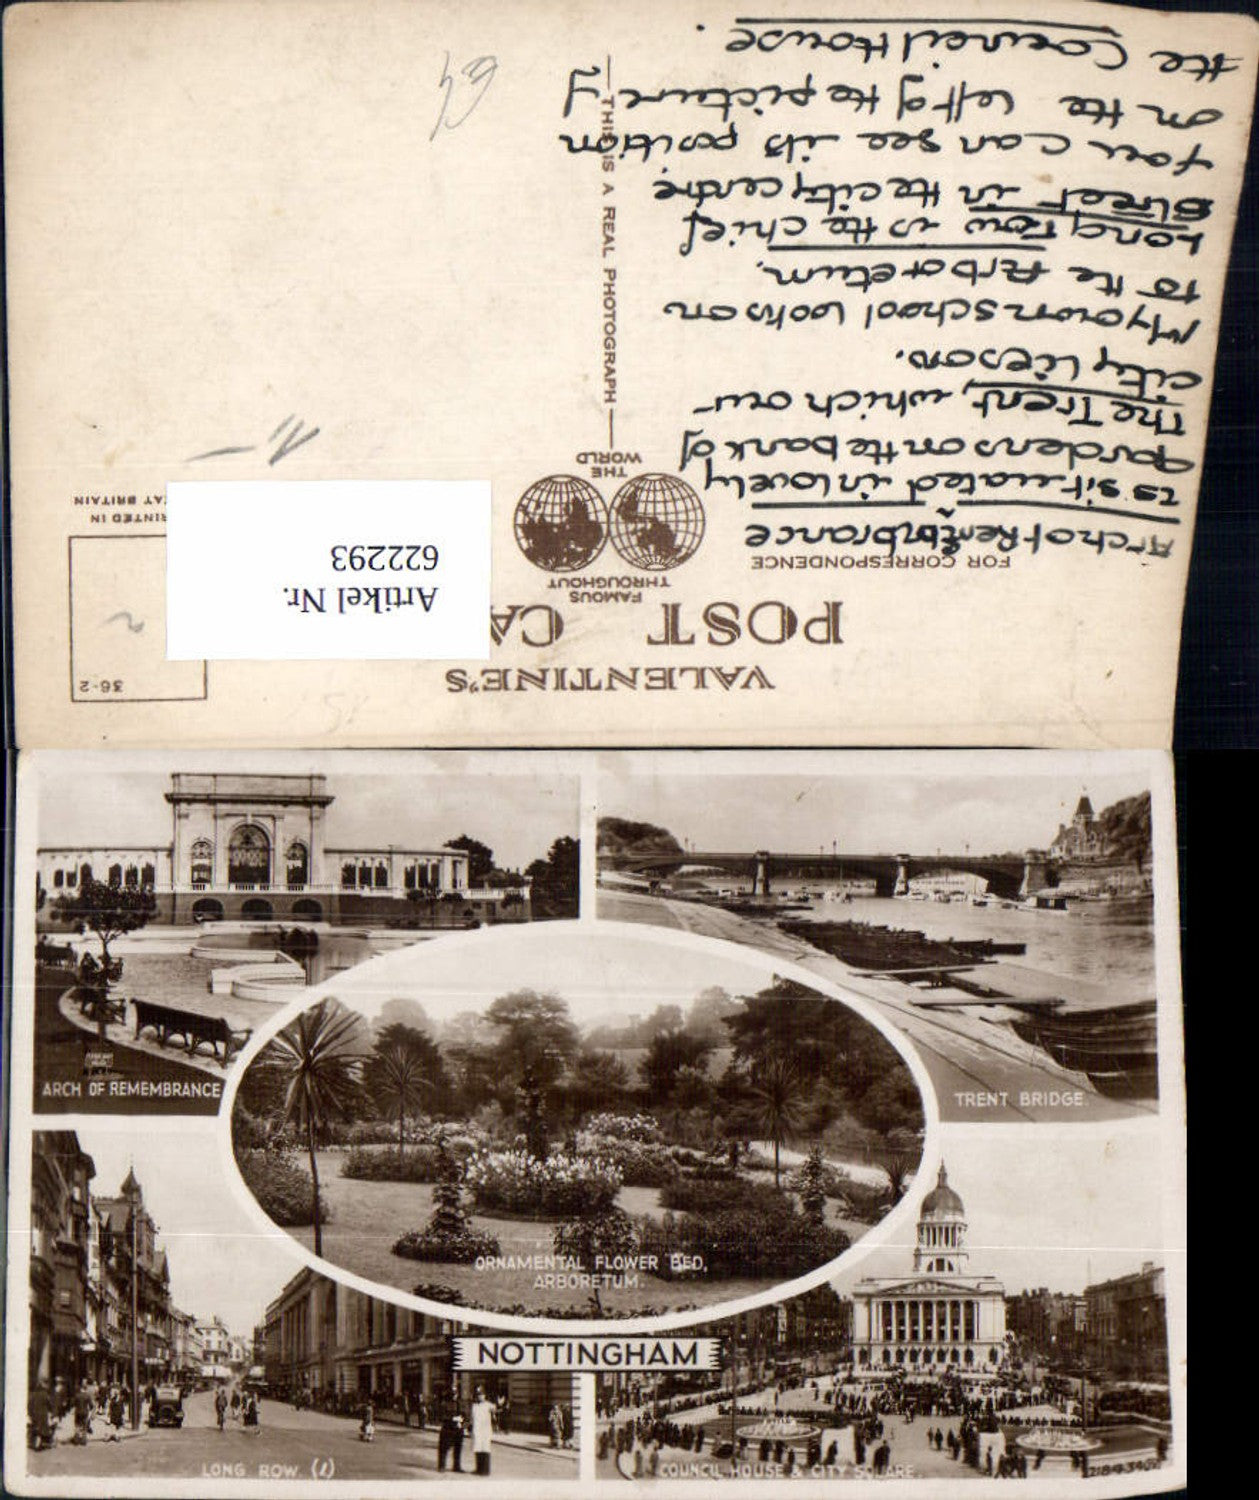 VALENTINE'S
POST CA
36-2
FAMOUS
THROUGHOUT
THE
WORLD
FOR CORRESPONDENCE
PRINTED IN
GREAT BRITAIN
Artikel Nr.
622293
THIS IS A REAL PHOTOGRAPH
Arch of Remembrance
is situated in lovely
gardens on the bank of
The Trent, which our
city lies on.
My own school looks on
to the Arboretum.
Long row is the chief
Street in the city centre
you can see its position
on the left of the picture of
the Council House.
ARCH OF REMEMBRANCE
TRENT BRIDGE.
ORNAMENTAL FLOWER BED,
ARBORETUM.
NOTTINGHAM
LONG ROW (1)
COUNCIL HOUSE & CITY SQUARE.